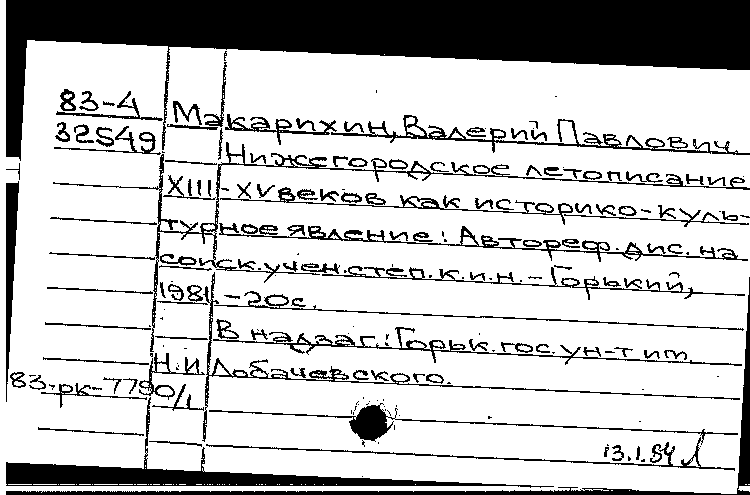 83-4
32549
Макарихин, Валерий Павлович.
Нижегородское летописание
XIII-XV веков как историко-куль-
турное явление: Автореф. дис. на
соиск. учен. степ. к.и.н. - Горький,
1981. - 20с.
В надзаг.: Горьк. гос. ун-т им.
Н.И. Лобачевского.
83-рк-7790/1
13.1.84